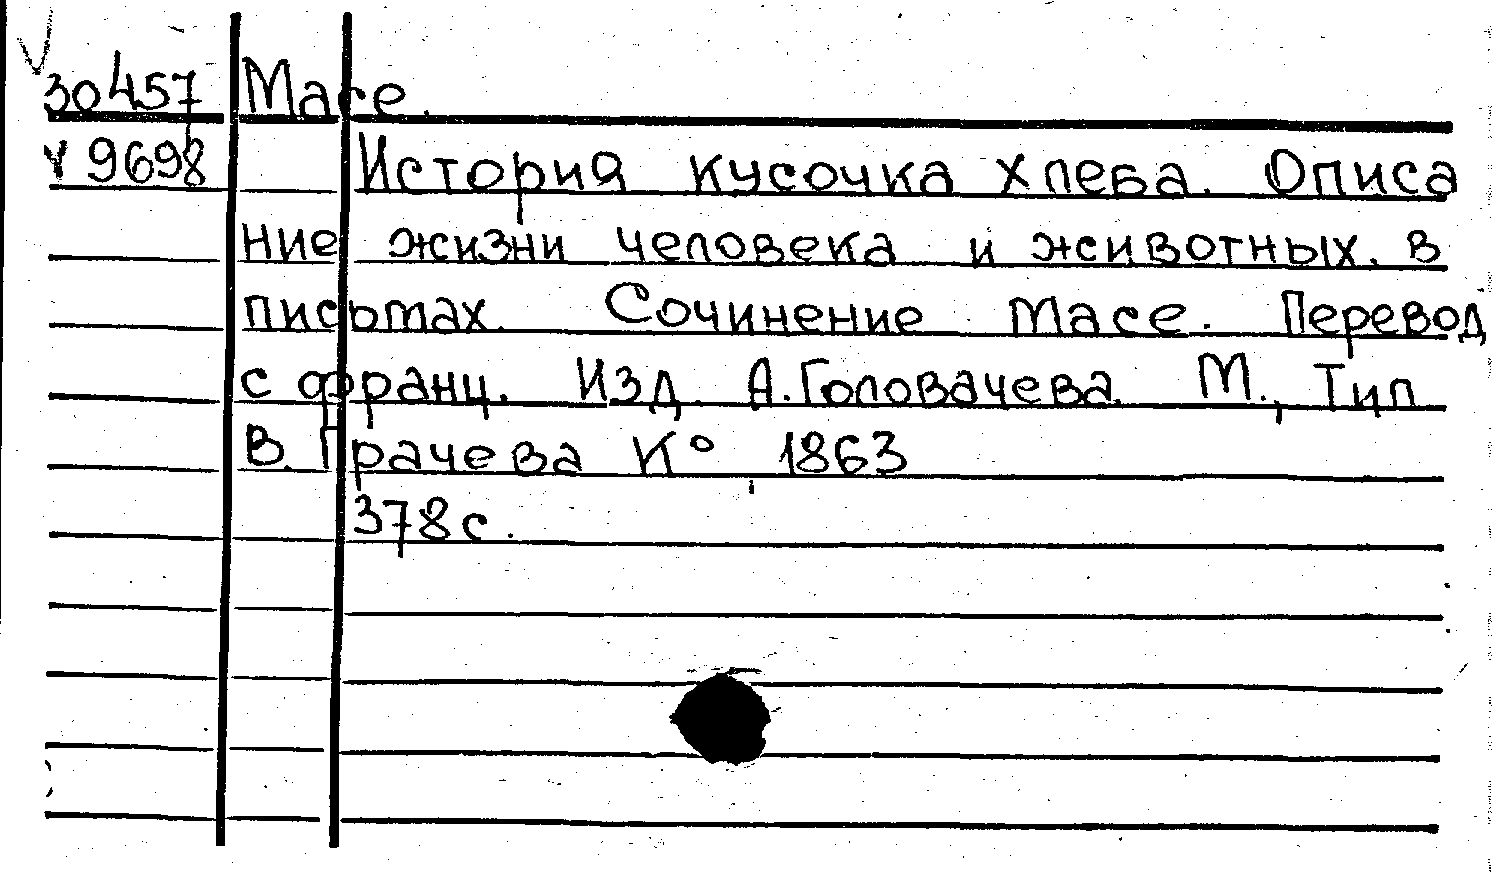 30457 Масе.
v 9698 История кусочка хлеба. Описа
ние жизни человека и животных. в
письмах. Сочинение Масе. Перевод
с франц. Изд. А. Головачева. М., Тип
В. Грачева К° 1863
378 с.